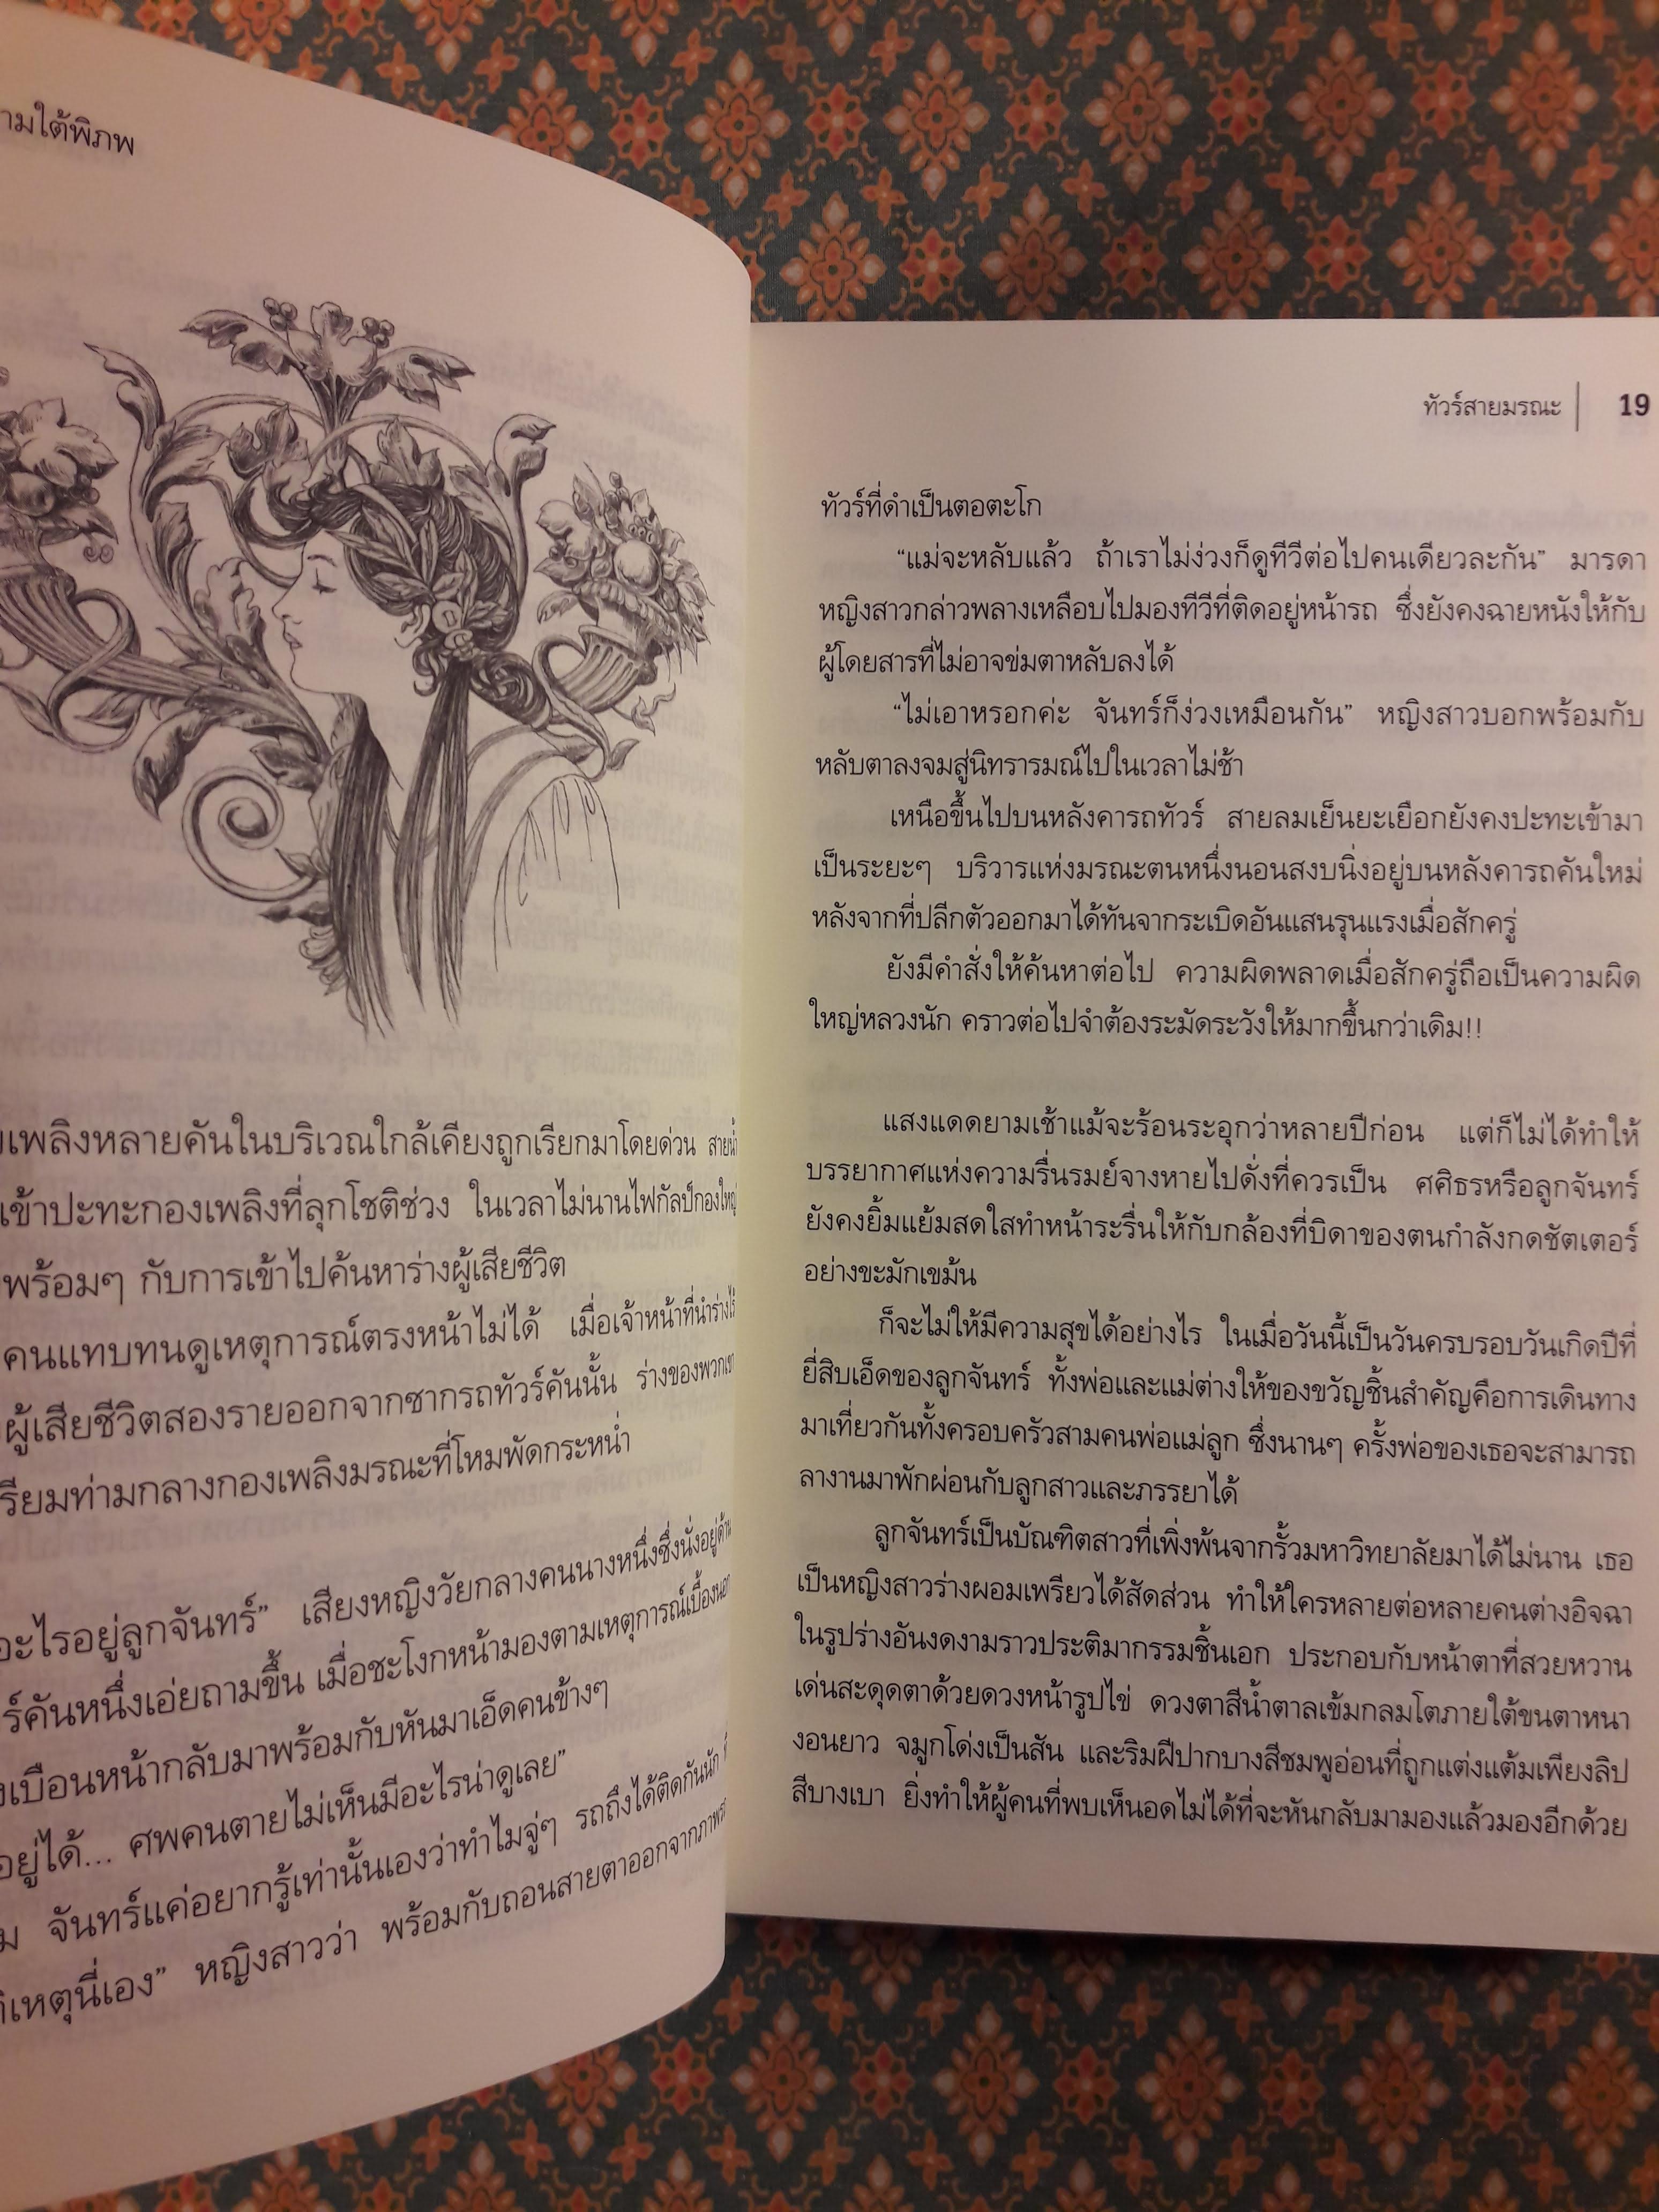 ใต้พิภพ
เพลิงหลายคันในบริเวณใกล้เคียงถูกเรียกมาโดยด่วน
เข้าปะทะกองเพลิงที่ลุกโชติช่วง ในเวลาไม่นานไฟกัลป์กองใหญ่
พร้อมๆ กับการเข้าไปค้นหาร่างผู้เสียชีวิต
คนแทบทนดูเหตุการณ์ตรงหน้าไม่ได้ เมื่อเจ้าหน้าที่นำร่างไร้
ผู้เสียชีวิตสองรายออกจากซากรถทัวร์คันนั้น ร่างของพวกเขา
เรียมท่ามกลางกองเพลิงมรณะที่โหมพัดกระหน่ำ
อะไรอยู่ลูกจันทร์” เสียงหญิงวัยกลางคนนางหนึ่งซึ่งนั่งอยู่ด้าน
ร์คันหนึ่งเอ่ยถามขึ้น เมื่อชะโงกหน้ามองตามเหตุการณ์เบื้องนอก
เบือนหน้ากลับมาพร้อมกับหันมาเอ็ดคนข้างๆ
อยู่ได้... ศพคนตายไม่เห็นมีอะไรน่าดูเลย”
จันทร์แค่อยากรู้เท่านั้นเองว่าทำไมจู่ๆ รถถึงได้ติดกันนัก
ติเหตุนี่เอง” หญิงสาวว่า พร้อมกับถอนสายตาออกจาก
ทัวร์สายมรณะ 19
ทัวร์ที่ดำเป็นตอตะโก
“แม่จะหลับแล้ว ถ้าเราไม่ง่วงก็ดูทีวีต่อไปคนเดียวละกัน” มารดา
หญิงสาวกล่าวพลางเหลือบไปมองทีวีที่ติดอยู่หน้ารถ ซึ่งยังคงฉายหนังให้กับ
ผู้โดยสารที่ไม่อาจข่มตาหลับลงได้
“ไม่เอาหรอกค่ะ จันทร์ก็ง่วงเหมือนกัน” หญิงสาวบอกพร้อมกับ
หลับตาลงจมสู่นิทรารมณ์ไปในเวลาไม่ช้า
เหนือขึ้นไปบนหลังคารถทัวร์ สายลมเย็นยะเยือกยังคงปะทะเข้ามา
เป็นระยะๆ บริวารแห่งมรณะตนหนึ่งนอนสงบนิ่งอยู่บนหลังคารถคันใหม่
หลังจากที่ปลีกตัวออกมาได้ทันจากระเบิดอันแสนรุนแรงเมื่อสักครู่
ยังมีคำสั่งให้ค้นหาต่อไป ความผิดพลาดเมื่อสักครู่ถือเป็นความผิด
ใหญ่หลวงนัก คราวต่อไปจำต้องระมัดระวังให้มากขึ้นกว่าเดิม!!
แสงแดดยามเช้าแม้จะร้อนระอุกว่าหลายปีก่อน แต่ก็ไม่ได้ทำให้
บรรยากาศแห่งความรื่นรมย์จางหายไปดั่งที่ควรเป็น ศศิธรหรือลูกจันทร์
ยังคงยิ้มแย้มสดใสทำหน้าระรื่นให้กับกล้องที่บิดาของตนกำลังกดชัตเตอร์
อย่างขะมักเขม้น
ก็จะไม่ให้มีความสุขได้อย่างไร ในเมื่อวันนี้เป็นวันครบรอบวันเกิดปีที่
ยี่สิบเอ็ดของลูกจันทร์ ทั้งพ่อและแม่ต่างให้ของขวัญชิ้นสำคัญคือการเดินทาง
มาเที่ยวกันทั้งครอบครัวสามคนพ่อแม่ลูก ซึ่งนานๆ ครั้งพ่อของเธอจะสามารถ
ลางานมาพักผ่อนกับลูกสาวและภรรยาได้
ลูกจันทร์เป็นบัณฑิตสาวที่เพิ่งพ้นจากรั้วมหาวิทยาลัยมาได้ไม่นาน เธอ
เป็นหญิงสาวร่างผอมเพรียวได้สัดส่วน ทำให้ใครหลายต่อหลายคนต่างอิจฉา
ในรูปร่างอันงดงามราวประติมากรรมชิ้นเอก ประกอบกับหน้าตาที่สวยหวาน
เด่นสะดุดตาด้วยดวงหน้ารูปไข่ ดวงตาสีน้ำตาลเข้มกลมโตภายใต้ขนตาหนา
งอนยาว จมูกโด่งเป็นสัน และริมฝีปากบางสีชมพูอ่อนที่ถูกแต่งแต้มเพียงลิป
สีบางเบา ยิ่งทำให้ผู้คนที่พบเห็นอดไม่ได้ที่จะหันกลับมามองแล้วมองอีกด้วย